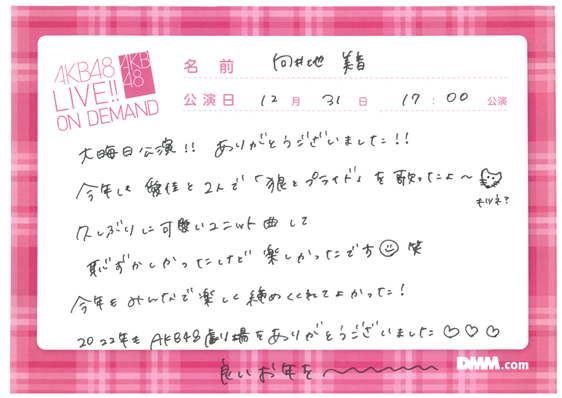 AKB48
LIVE!!
ON DEMAND
AKB
48
名前 向井地 美音
公演日 12月 31日 17:00 公演
大晦日公演!! ありがとうございました!!
今年も 愛佳と2人で「狼とプライド」を歌ったよ〜
キツネ?
久しぶりに可愛いユニット曲して
恥ずかしかったけど 楽しかったです 笑
今年もみんなで楽しく締めくくれてよかった!
2022年も AKB48劇場をありがとうございました♡♡♡
良いお年を〜
DMM.com